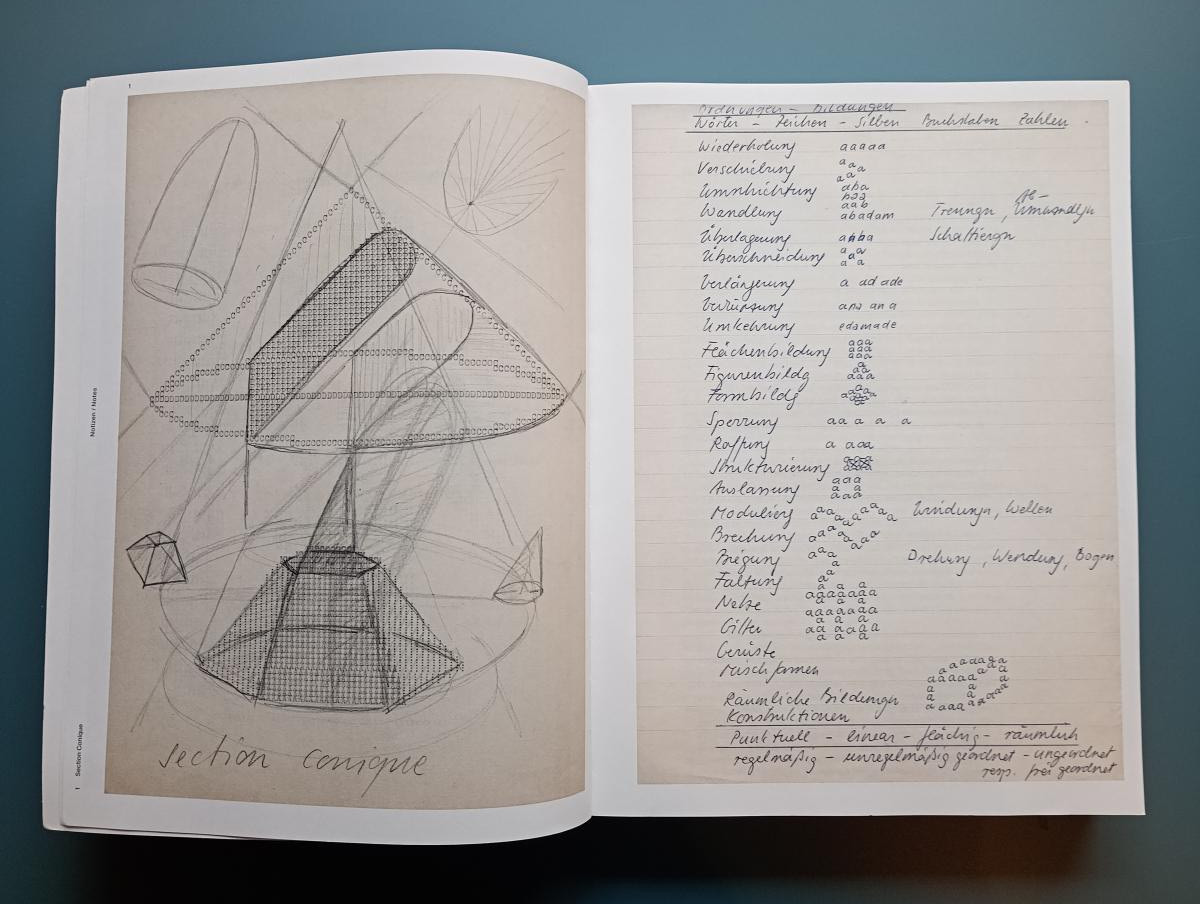 1
Notizen / Notes
1 Section Conique
section conique
Ordnungen - Bildungen
Wörter - Zeichen - Silben Buchstaben Zahlen
Wiederholung aaaaa
Verschiebung aaa
aa
Umschichtung aba
baa
Wandlung aab
abadam Trennugn, Ab-
Umwandlgn
Überlagerung anba Schattiergn
Überschneidung a a
a
a a
Verlängerung a ad ade
Verkürzung ana an a
Umkehrung edamade
Flächenbildung aaa
aaa
aaa
Figurenbildg a
aa
aaa
Formbildg
Sperrung aa a a a
Raffung a aaa
Strukturierung
Auslassung aaa
a a
aaa
Modulierg a a a a a a a a Windungn, Wellen
Brechung a a a a a a a
Biegung a a a
a Drehung, Wendung, Bogen
Faltung a
a
Netze a a a
aaaaaaa
a a a
aaaaaaa
Gitter a a a
aa aaaaa
a a a
Gerüste
Mischformen
Räumliche Bildungn
Konstruktionen
Punktuell - linear - flächig - räumlich
regelmäßig - unregelmäßig geordnet - ungeordnet
resp. frei geordnet